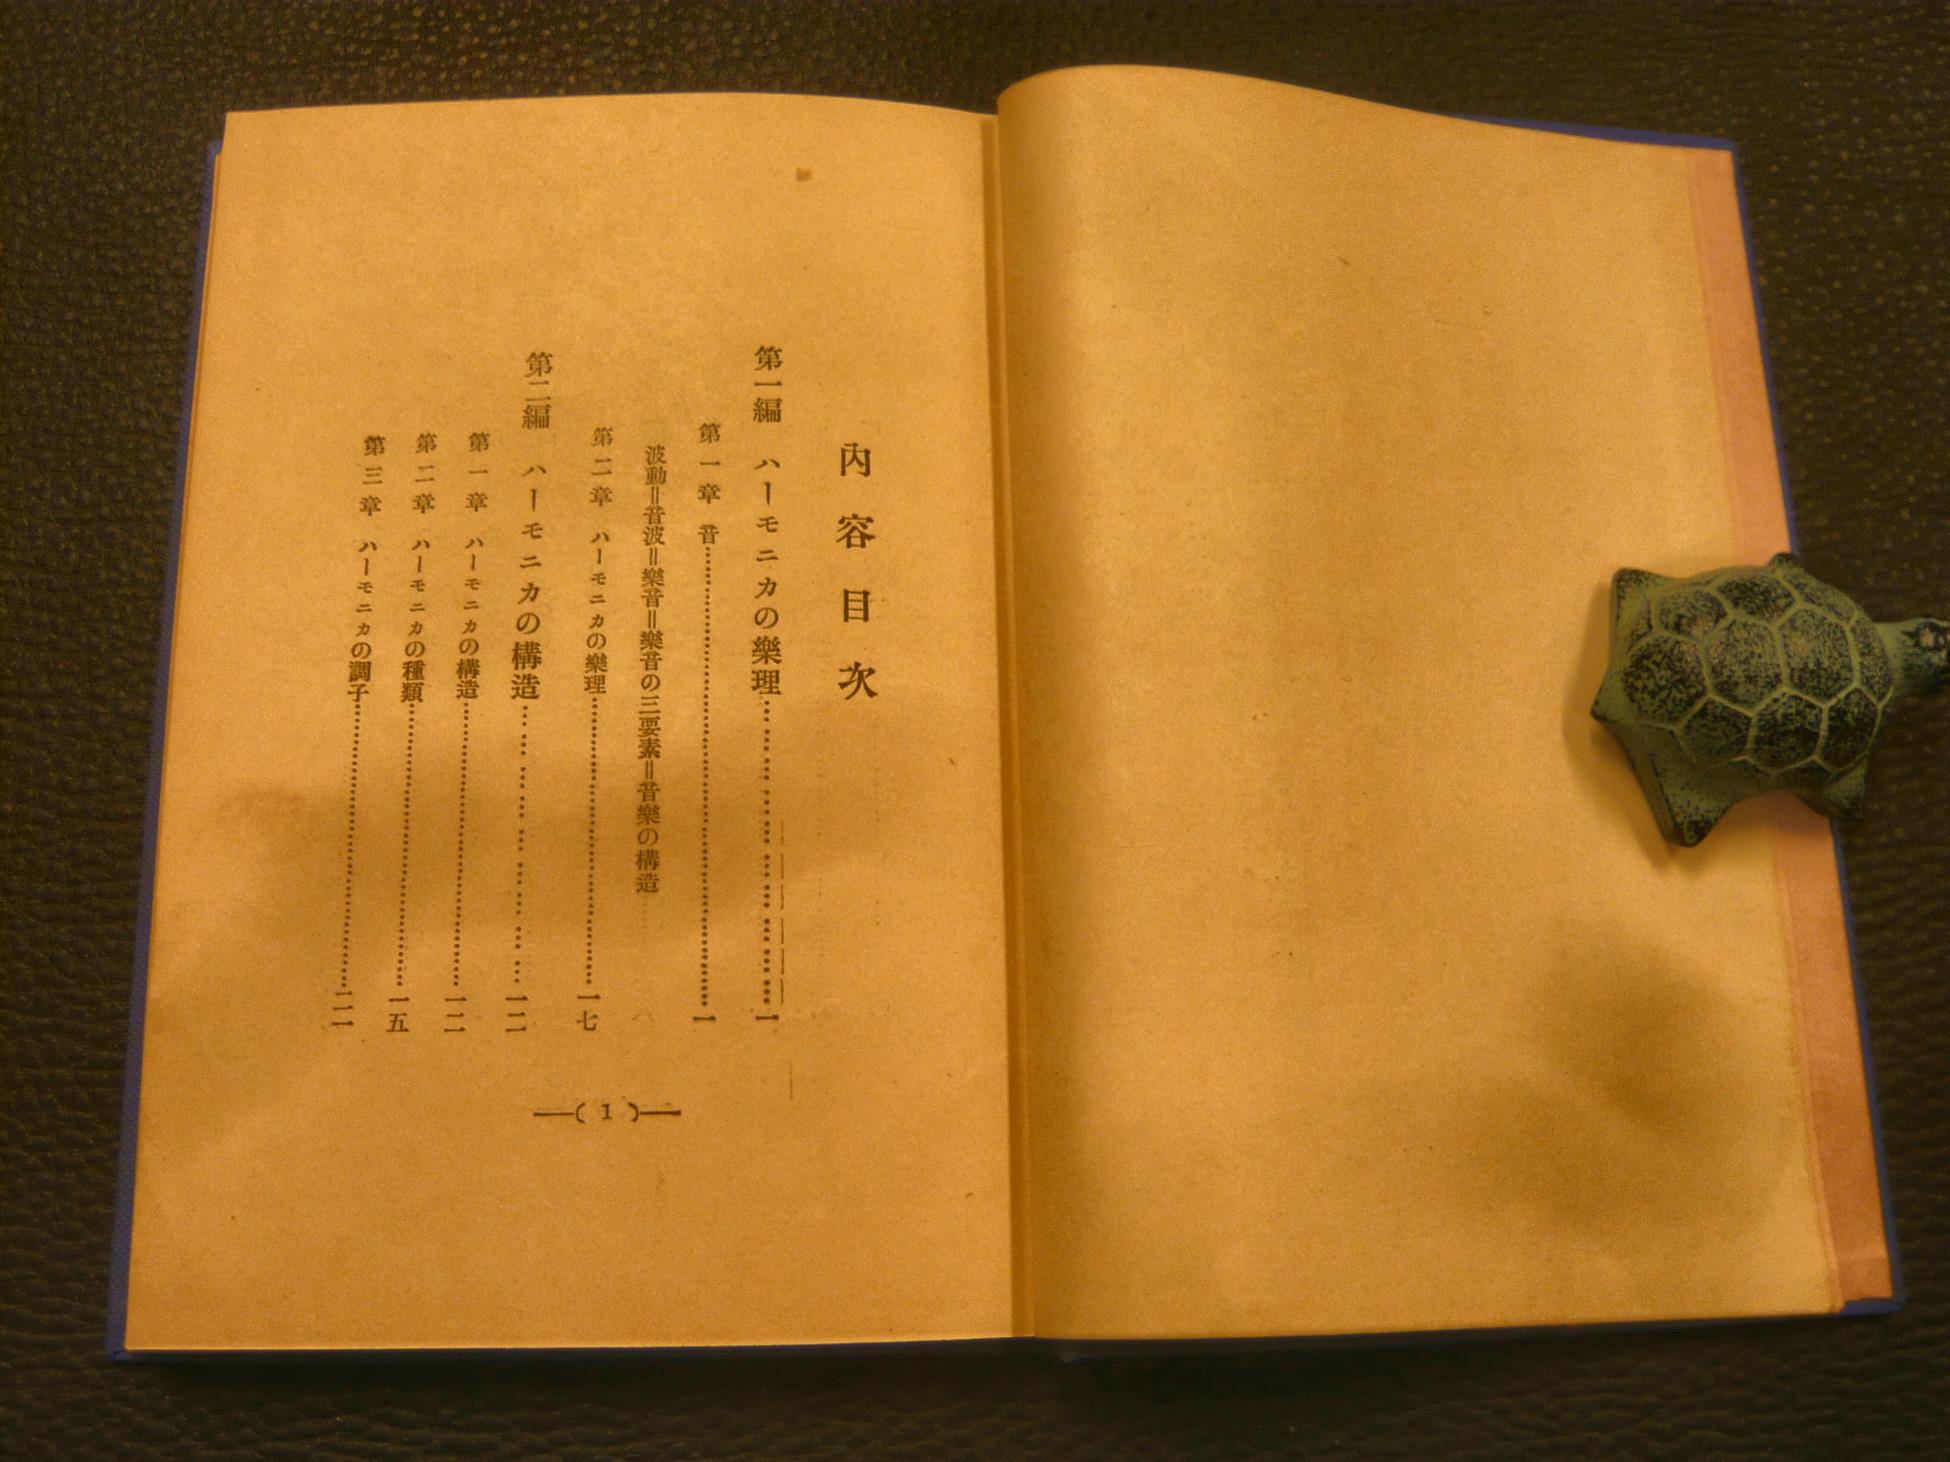 內容目次
第一編 ハーモニカの樂理………………一
第一章 音………………一
波動＝音波＝樂音＝樂音の三要素＝音樂の構造
第二章 ハーモニカの樂理………………一七
第二編 ハーモニカの構造………………一二
第一章 ハーモニカの構造………………一二
第二章 ハーモニカの種類………………一五
第三章 ハーモニカの調子………………二一
―( 1 )―